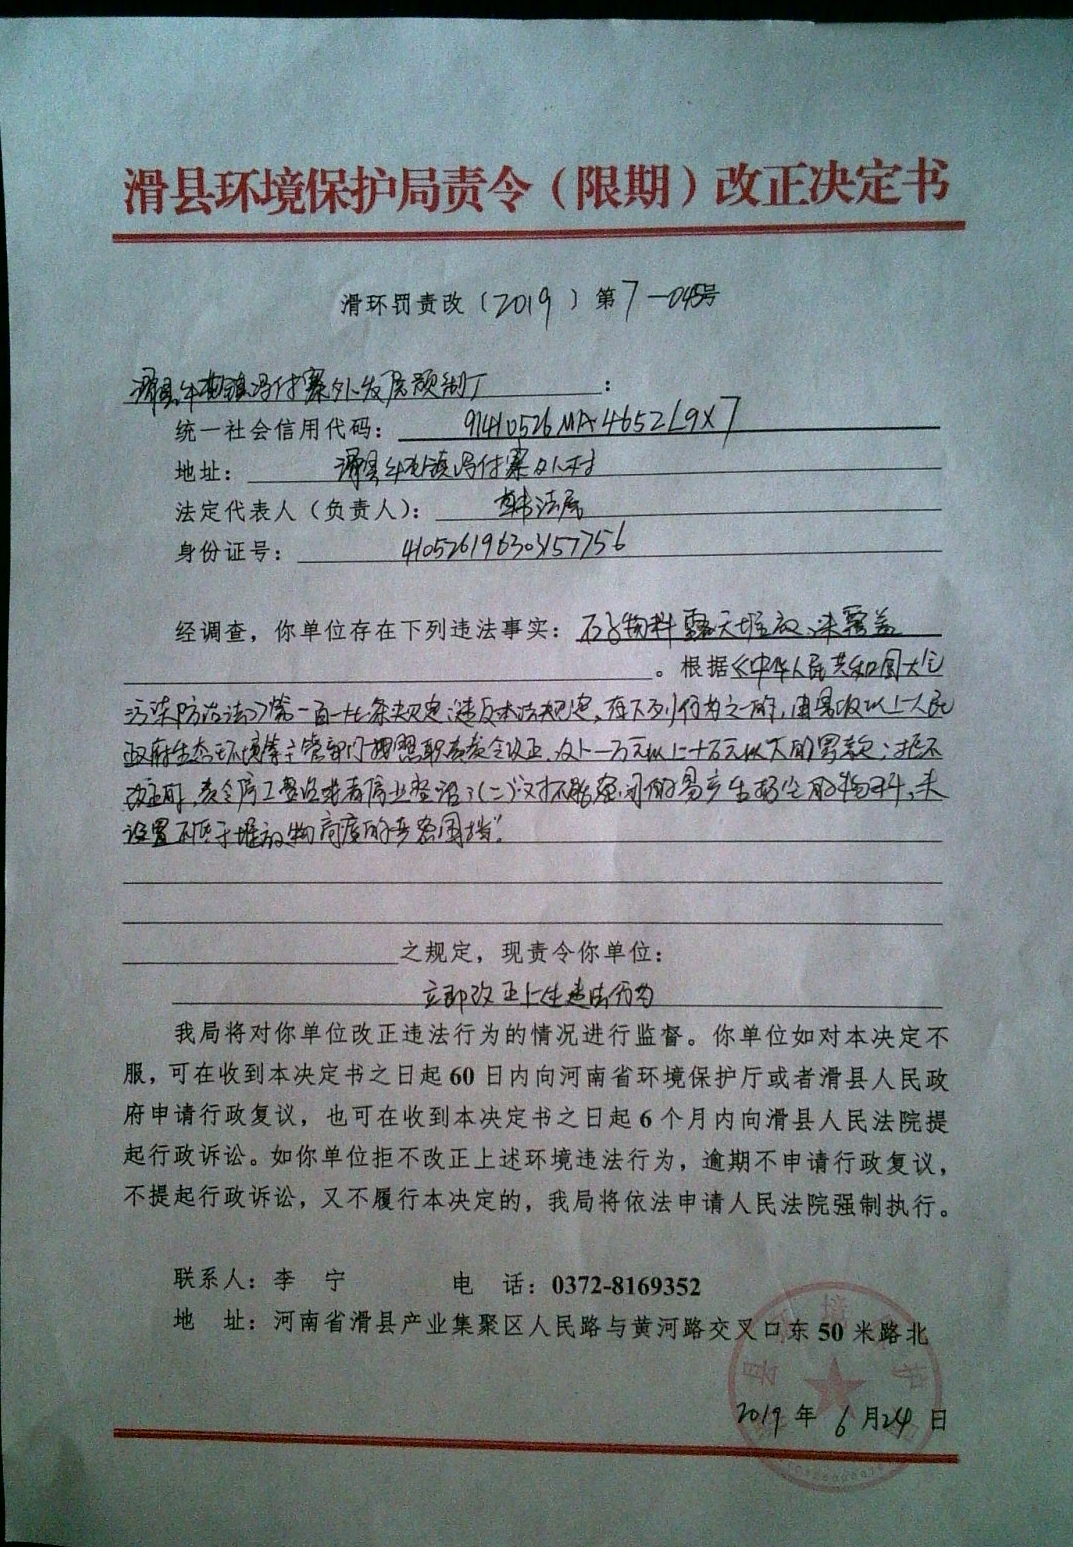 滑县环境保护局责令（限期）改正决定书
滑环罚责改〔2019〕第7-045号
滑县牛屯镇冯付寨外发房预制厂：
统一社会信用代码：91410526MA4652L9X7
地址：滑县牛屯镇冯付寨外村
法定代表人（负责人）：韩法房
身份证号：410526196303157756
经调查，你单位存在下列违法事实：石子物料露天堆放，未覆盖
。根据《中华人民共和国大气
污染防治法》第一百一十七条规定：违反本法规定，有下列行为之一的，由县级以上人民
政府生态环境等主管部门按照职责责令改正，处一万元以上十万元以下的罚款；拒不
改正的，责令停工整治或者停业整治；（二）对不能密闭的易产生扬尘的物料，未
设置不低于堆放物高度的严密围挡”
之规定，现责令你单位：
立即改正上述违法行为
我局将对你单位改正违法行为的情况进行监督。你单位如对本决定不
服，可在收到本决定书之日起60日内向河南省环境保护厅或者滑县人民政
府申请行政复议，也可在收到本决定书之日起6个月内向滑县人民法院提
起行政诉讼。如你单位拒不改正上述环境违法行为，逾期不申请行政复议，
不提起行政诉讼，又不履行本决定的，我局将依法申请人民法院强制执行。
联系人：李 宁 电 话：0372-8169352
地 址：河南省滑县产业集聚区人民路与黄河路交叉口东50米路北
2019年6月24日